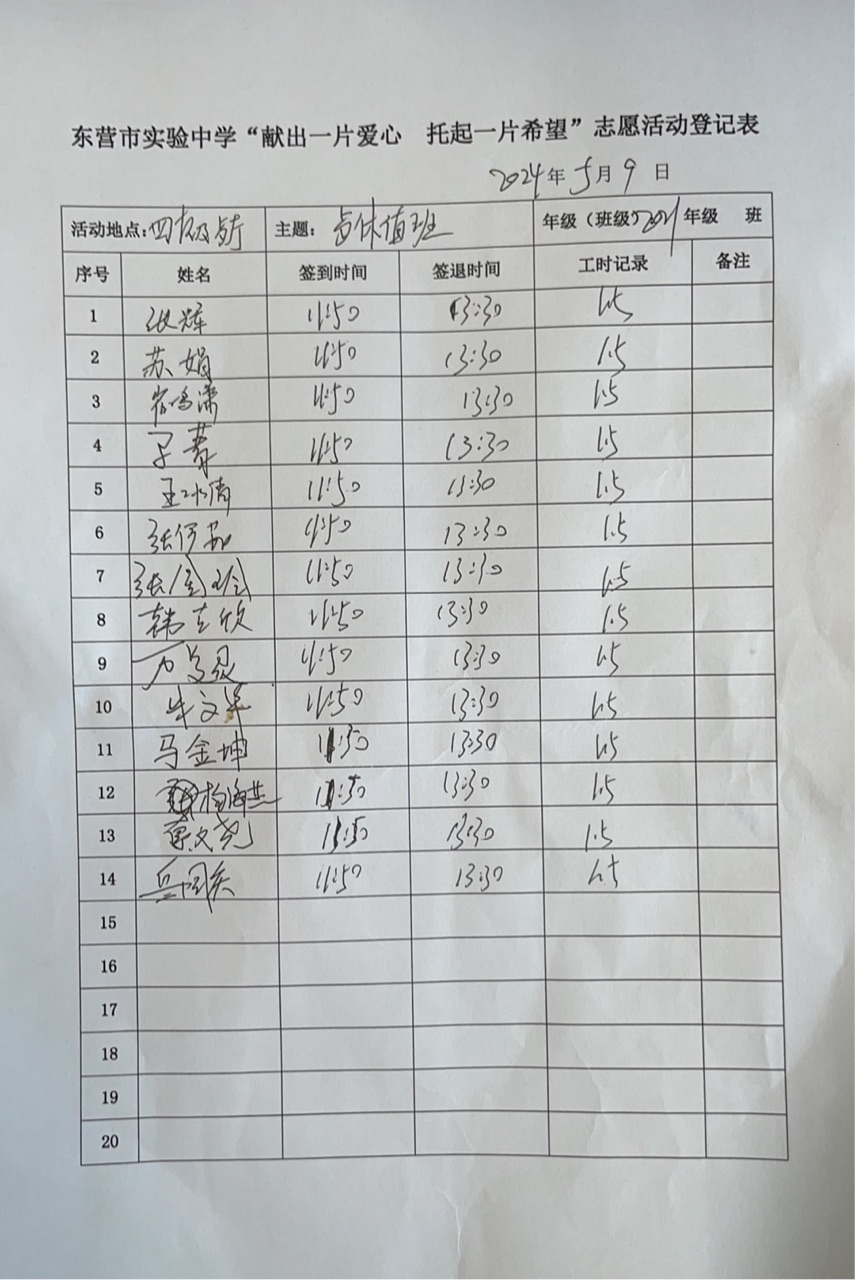 东营市实验中学“献出一片爱心 托起一片希望”志愿活动登记表
2024年5月9日
活动地点: 四校及 主题: 午休值班 年级（班级）2021年级 班
序号 姓名 签到时间 签退时间 工时记录 备注
1 张辉 11:50 13:30 1.5
2 苏娟 11:50 13:30 1.5
3 11:50 13:30 1.5
4 11:50 13:30 1.5
5 王冰倩 11:50 13:30 1.5
6 11:50 13:30 1.5
7 张 11:50 13:30 1.5
8 韩 欣 11:50 13:30 1.5
9 11:50 13:30 1.5
10 牛文华 11:50 13:30 1.5
11 马金坤 11:50 13:30 1.5
12 杨海燕 11:50 13:30 1.5
13 文尧 11:50 13:30 1.5
14 11:50 13:30 1.5
15
16
17
18
19
20